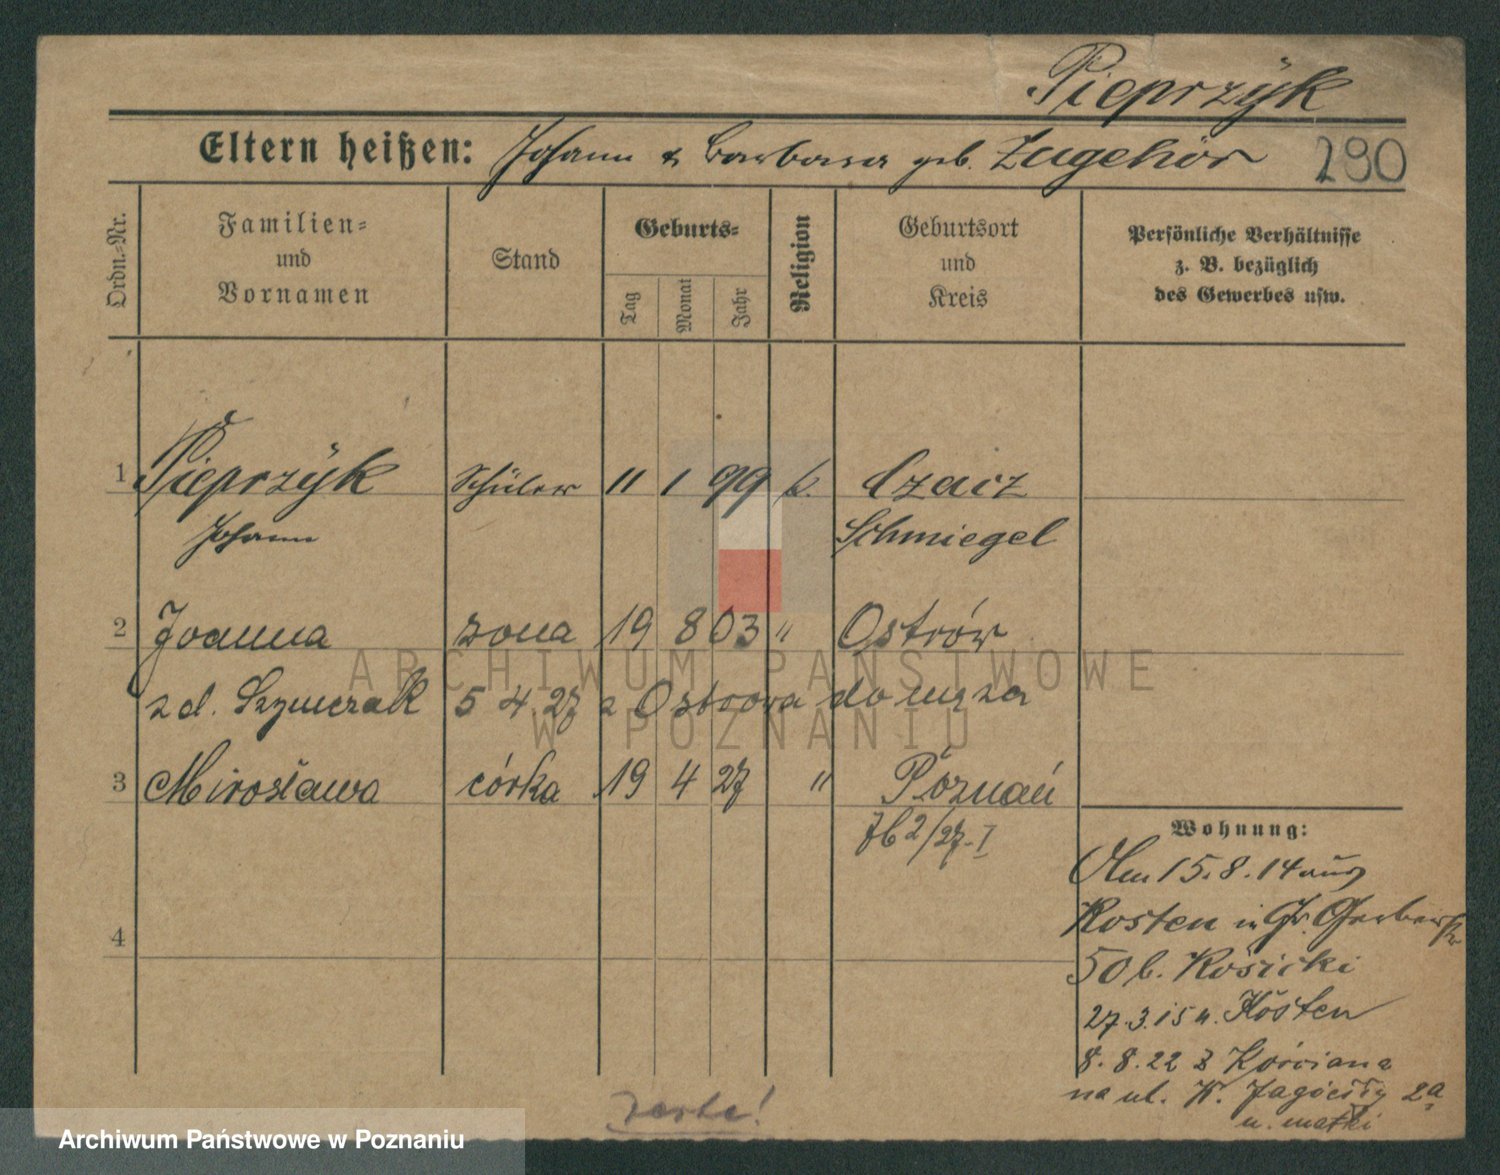 Pieprzÿk
Eltern heißen: Johann & Barbara geb. Zugehör 290
Ordn.-Nr.
Familien- und Vornamen
Stand
Geburts-
Tag Monat Jahr
Religion
Geburtsort und Kreis
Persönliche Verhältnisse
z. B. bezüglich
des Gewerbes usw.
1 Pieprzÿk Schüler 11 1 99 k. Czacz
Johann Schmiegel
2 Joanna zona 19 8 03 " Ostrów
z d. Szymczak 5 4 27 z Ostrowa do męza
3 Mirosława córka 19 4 27 " Poznań
2/27-I
4
Wohnung:
Am 15.8.14 aus
Kosten in Gr. Gerberstr
50 b. Kosicki
27.3.15 n. Kosten
8.8.22 z Kościana
na ul. W. Jagiełły 2a
u. matki
ARCHIWUM PAŃSTWOWE
W POZNANIU
Archiwum Państwowe w Poznaniu